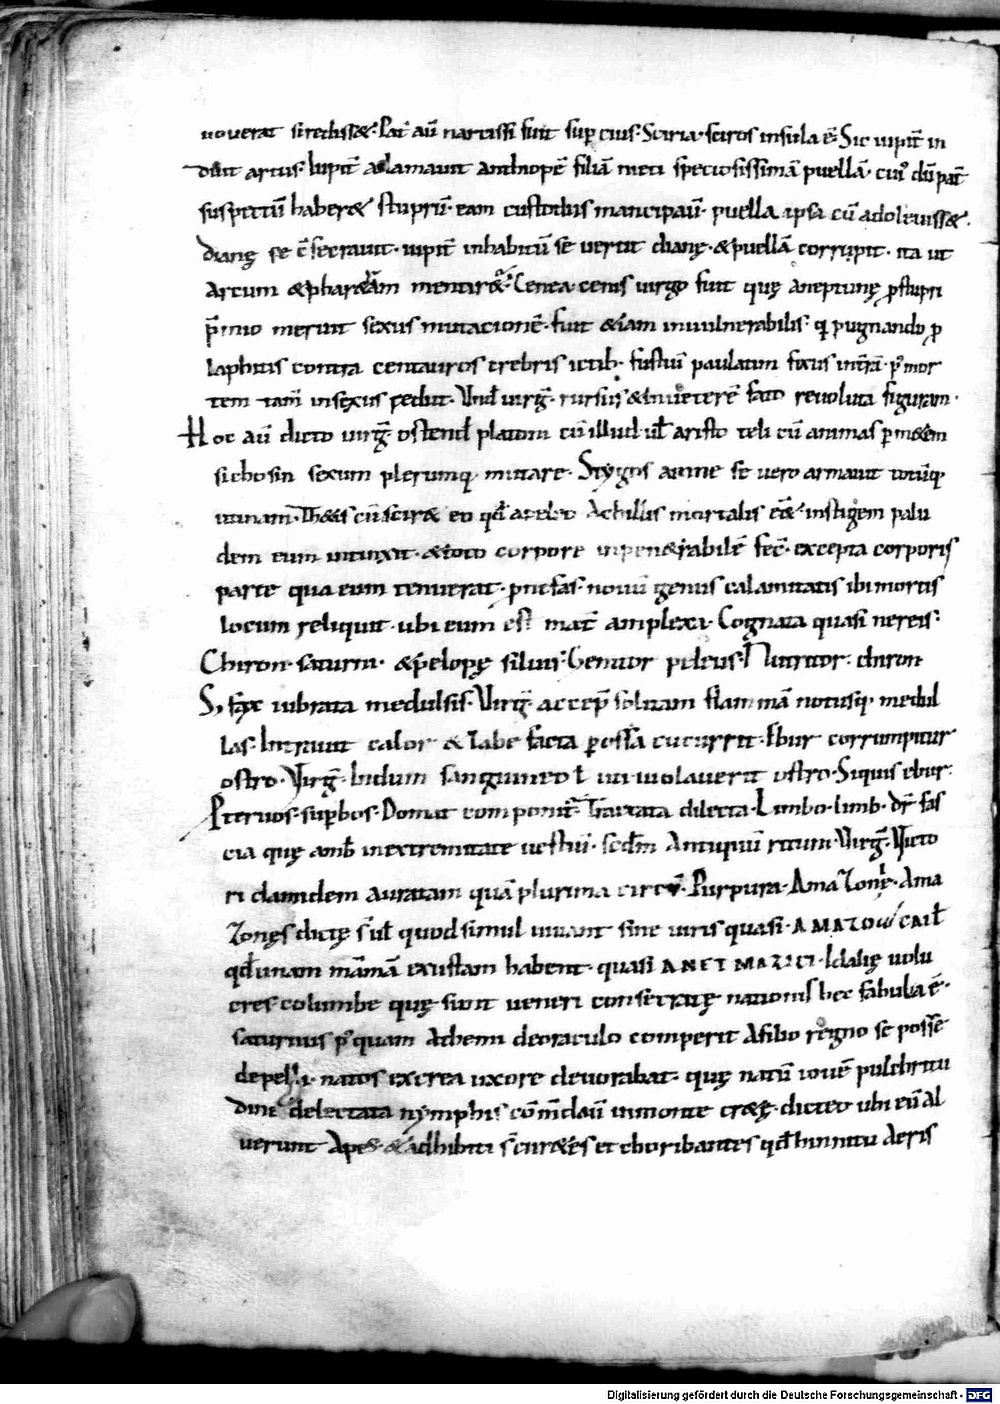 nouerat si rediss&. Pat̄ aū narcissi fuit sup̄ eius. Sciria. sciros insula ē. Sic iupit̄ in
duit artus. Iupit̄ adamauit anthiopē filiā nictei speciosissimā puellā. cui᾽ dū pat̄
suspectū haber& stuprū. eam custodiis mancipauit. puella ipsa cū adoleuiss&.
dianę se c̄secrauit. iupit̄ inhabitū se uertit dianę. & puellā corrupit. ita ut
arcum & phar&rām mentir&ur. Cenea. cenis uirgo fuit quę aneptunę p̄stupri
p̄mio meruit sexus mutacionē. fuit &iam inuulnerabilis. qi pugnando p̄
laphitis contra centauros crebris ictib. fustiū paulatim fixus int̄rā. p᾽ mor
tem tam̄ insexus rediit. Vnd̄ uirg̅. rursus & inueterē fato reuoluta figuram.
Hoc aū dicto uirg̅. ostend̄ platoni cū illud. ul̄ aristoteli cū animas p̄ m&em
sichosin sexum plerumq; mutare. Stygos amne se uero armauit totūq;
uinam. Th&is cū scir& eo qd̄ acelso Achillis mortalis
dem eum intinxit. & toto corpore inpen&rabilē fec̄. excepta corporis
parte qua eum tenuerat. nouū genus calamitatis ibi mortis
locum reliquit. ubi eum est mat̄ amplexa. Cognata quasi nereis.
Chiron. saturni. & pelopę filius. Genitor peleus. Nutritor. chiron
S, fax uibrata medulsis. Virg̅ accep̄ solitam flammā notusq; medul
las. Intrauit calor & labe facta p̄ ossa cucurrit. Ebur corrumpitur
ostro. Virg̅. Indum sanguineo l̄ ui uiolauerit ostro. Siquis ebur.
Pteruos. sup̄bos. Domat componit. Traxata dilecta. Limbo. limb. dr̄ fas
cia quę amb̄ inextremitate uestiū. scdm̄ Antiquū ritum. Virg̅. Victo
ri clamidem auratam quā plurima circū. Purpura. Amazonę. Ama
zonęs dictę s̄ ul̄ quod simul uiuant sine uiris quasi. AMAZOW
qd̄ unam mām̄ā exustam habent. quasi ANET MAZICI. Idalię uolu
cres columbe quę sunt ueneri consecratę nationis hec fabula ē.
saturnus p᾽ quam Athemi deoraculo comperit Afilio regno se possē
depelli. natos exrea uxore deuorabat. quę natū iouē pulchritu
dine delectata nymphis cōm̄dauit inmonte cr&ę. dicteo ubi eū al
uerunt Apes. & adhibiti s̄ cur&es et choribantes qd̄ hinnitu aeris